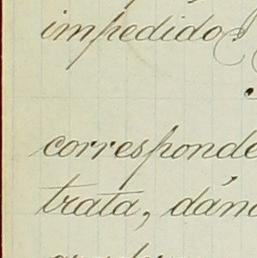 impedido
corresponde
trata, dán